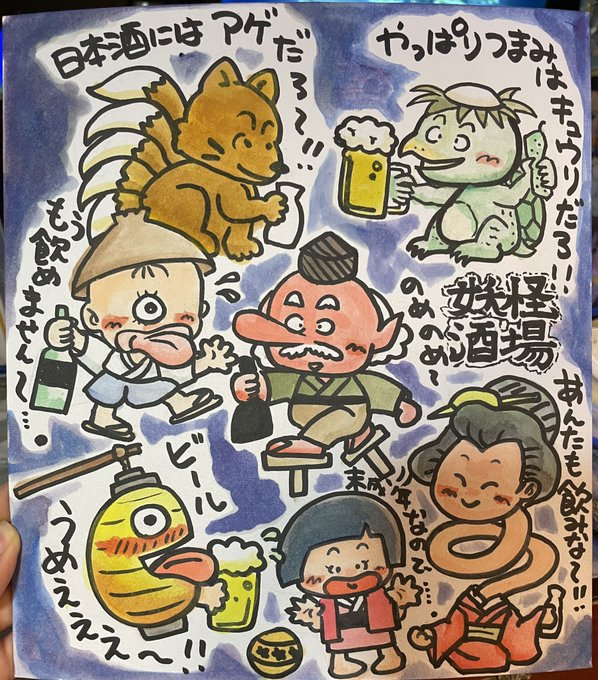 日本酒にはアゲだろ〜!!
やっぱりつまみはキュウリだろ!!
もう飲めません〜…。
のめのめ〜
妖怪
酒場
あんたも飲みな〜!!
ビール
うめえええ〜!!
未成年なので…